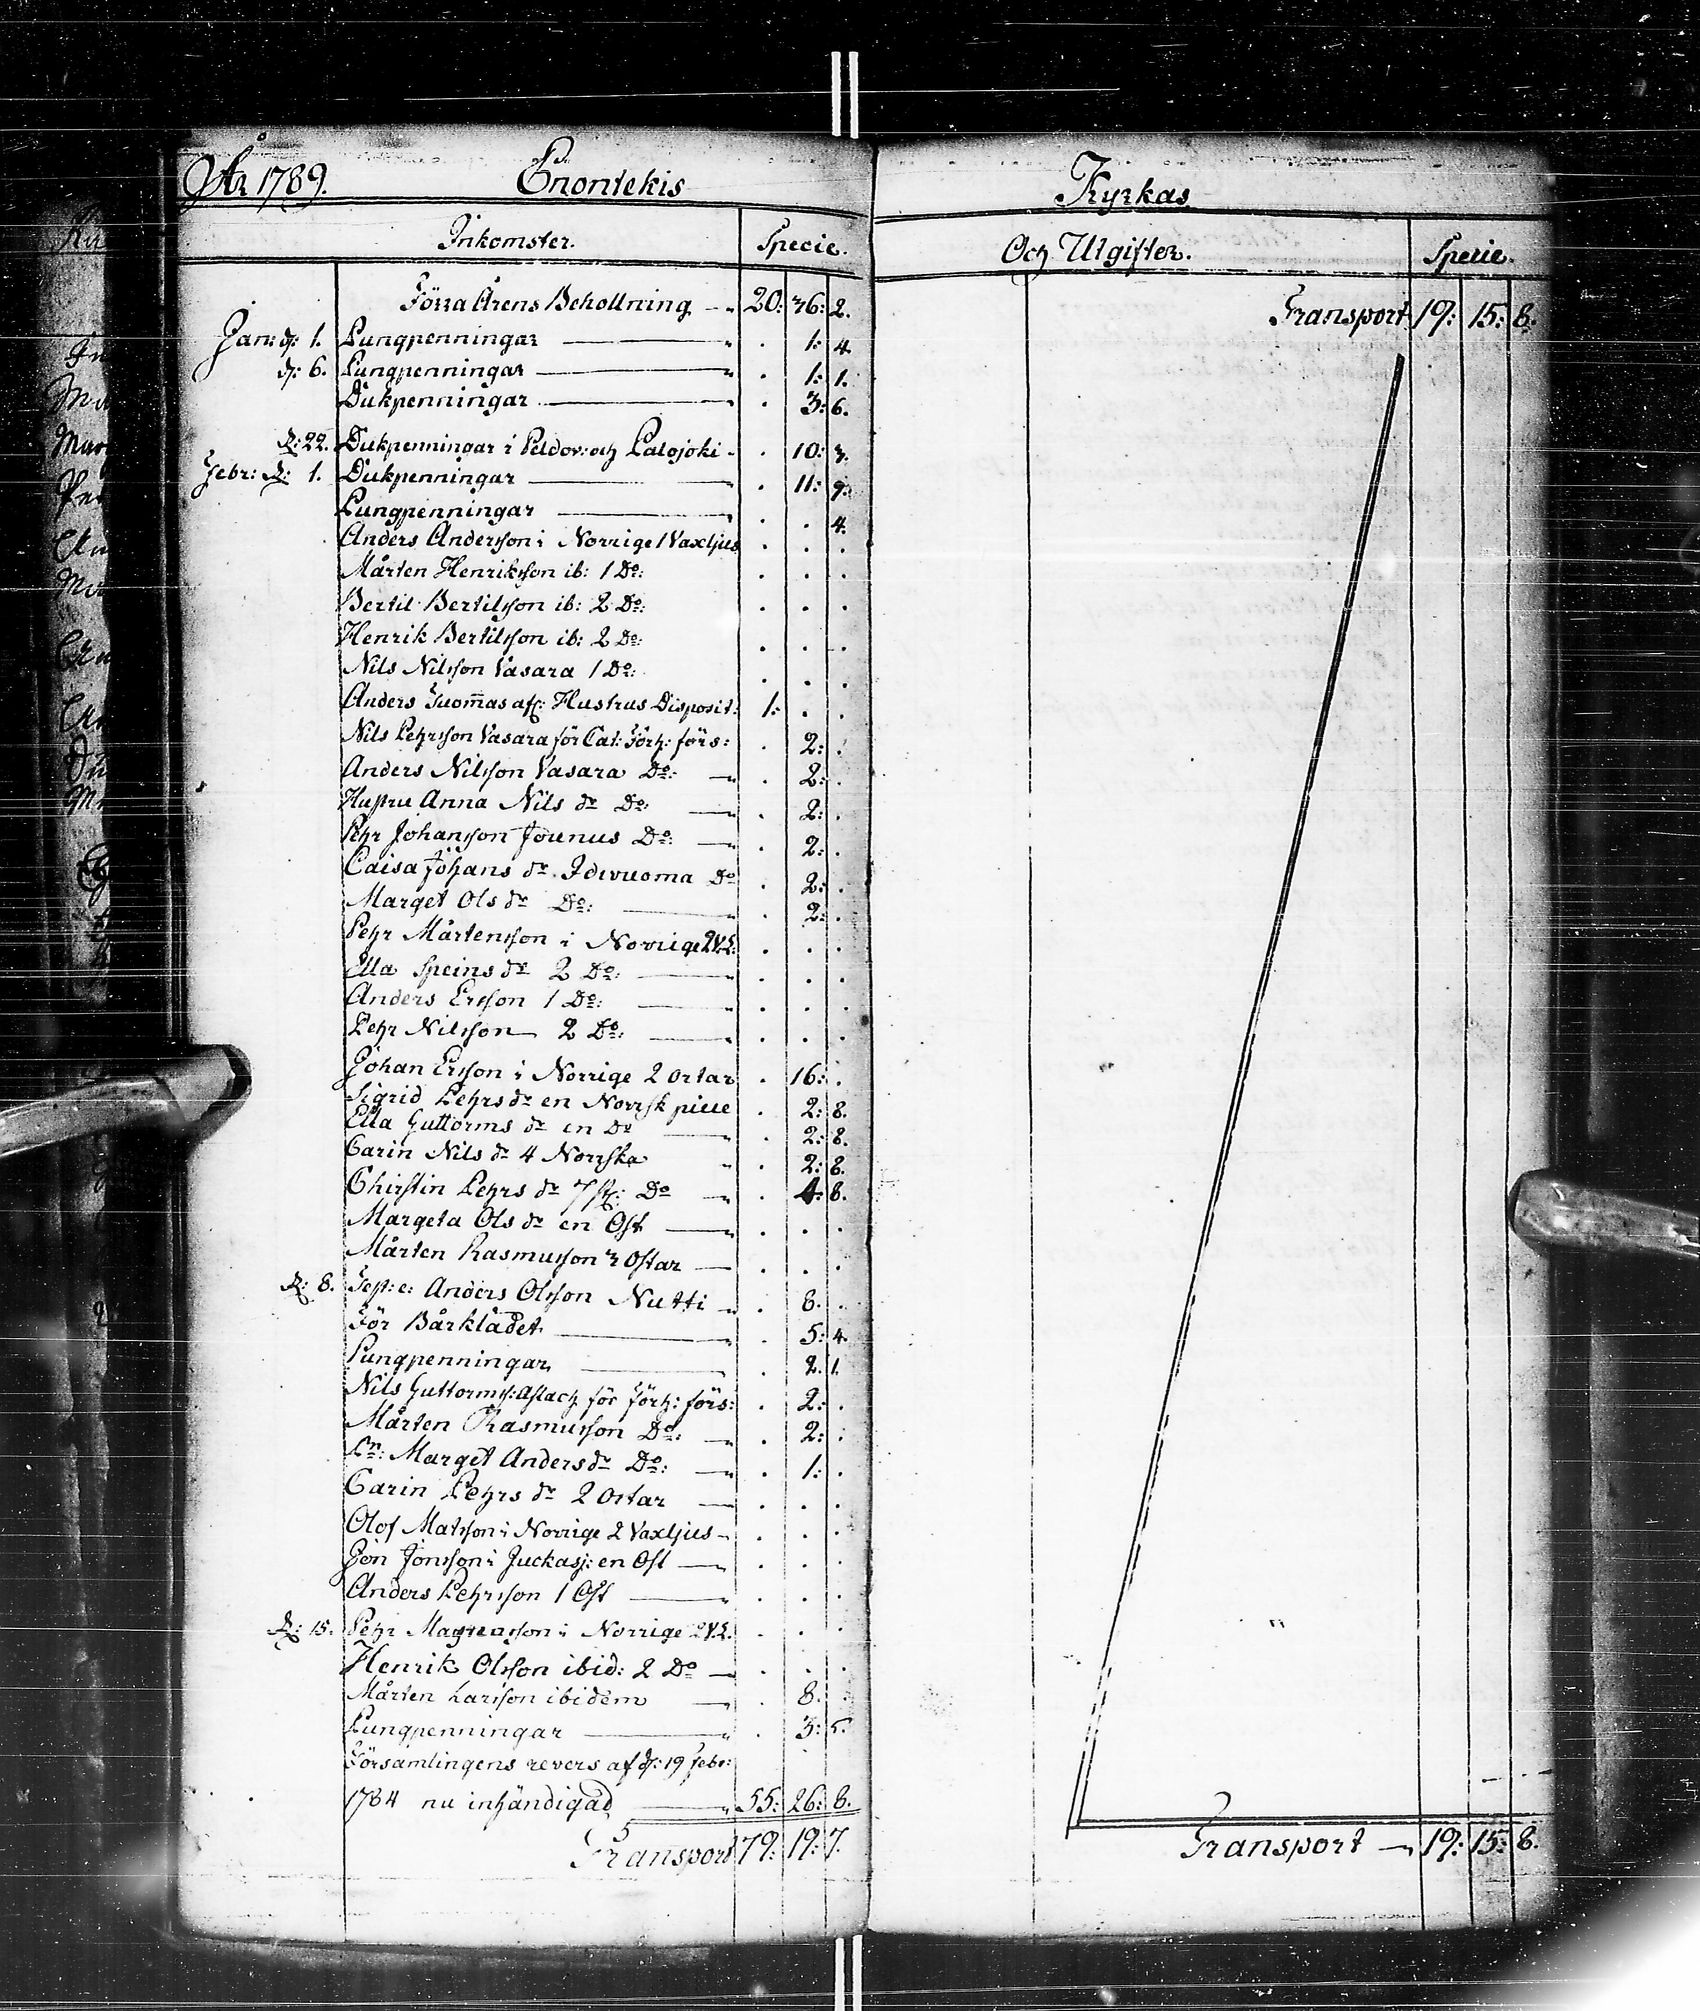 År 1789. Enontekis
Inkomster. Specie.
Förra Årens Behollning 20: 36: 2.
Jan: d: 1. Pungpenningar 1: 4.
d: 6. Pungpenningar 1: 1.
Dukpenningar 3: 6.
D: 22. Dukpenningar i Peldov: och Palojoki 10: 3.
Febr: D: 1. Dukpenningar 11: 9.
Pungpenningar 4.
Anders Andersson i Norrige 1 Vaxljus
Mårten Henriksson ib: 1 Do:
Bertil Bertilsson ib: 2 Do:
Henrik Bertilsson ib: 2 Do:
Nils Nilsson Vasara 1 Do:
Anders Juomas afl: Hustrus Disposit: 1:
Nils Pehrsson Vasara för Cat: Förh: förs: 2:
Anders Nilsson Vasara Do: 2:
Hustru Anna Nils dr Do: 2:
Pehr Johansson Jounus Do: 2:
Caisa Johans dr Idivuoma Do 2:
Marget Ols dr Do: 2:
Pehr Mårtensson i Norrige 2 V:L:
Ella Speins dr 2 Do:
Anders Ersson 1 Do:
Pehr Nilsson 2 Do:
Johan Ersson i Norrige 2 ortar 16:
Sigrid Pehrs dr en Norrsk piece 2: 8.
Ella Guttorms dr en Do 2: 8.
Carin Nils dr 4 Norrska 2: 8.
Chirstin Pehrs dr 7 st: Do 4: 8.
Margeta Ols dr en Ost
Mårten Rasmusson 2 Ostar
D: 8. Test: e: Anders Olsson Nutti 8.
För Bårklädet 5: 4.
Pungpenningar 2. 1.
Nils Guttorms: Aslach för Förh: förs: 2:
Mårten Rasmusson Do: 2:
Pn: Marget Anders dr Do: 1:
Carin Pehrs dr 2 Ostar
Olof Matsson i Norrige 2 Vaxljus
Jon Jonsson i Juckasj: en Ost
Anders Pehrsson 1 Ost
D: 15. Pehr Magnusson i Norrige 2 V:L.
Henrik Olsson ibid: 2 Do
Mårten Larsson ibidem 8.
Pungpenningar 3: 5.
Församlingens revers af d: 19 Febr:
1784 nu inhändigad 55: 26: 8.
Transport 79: 19: 7.
Kyrkas
Och Utgifter. Specie.
Transport 19: 15: 8.
Transport 19: 15: 8.